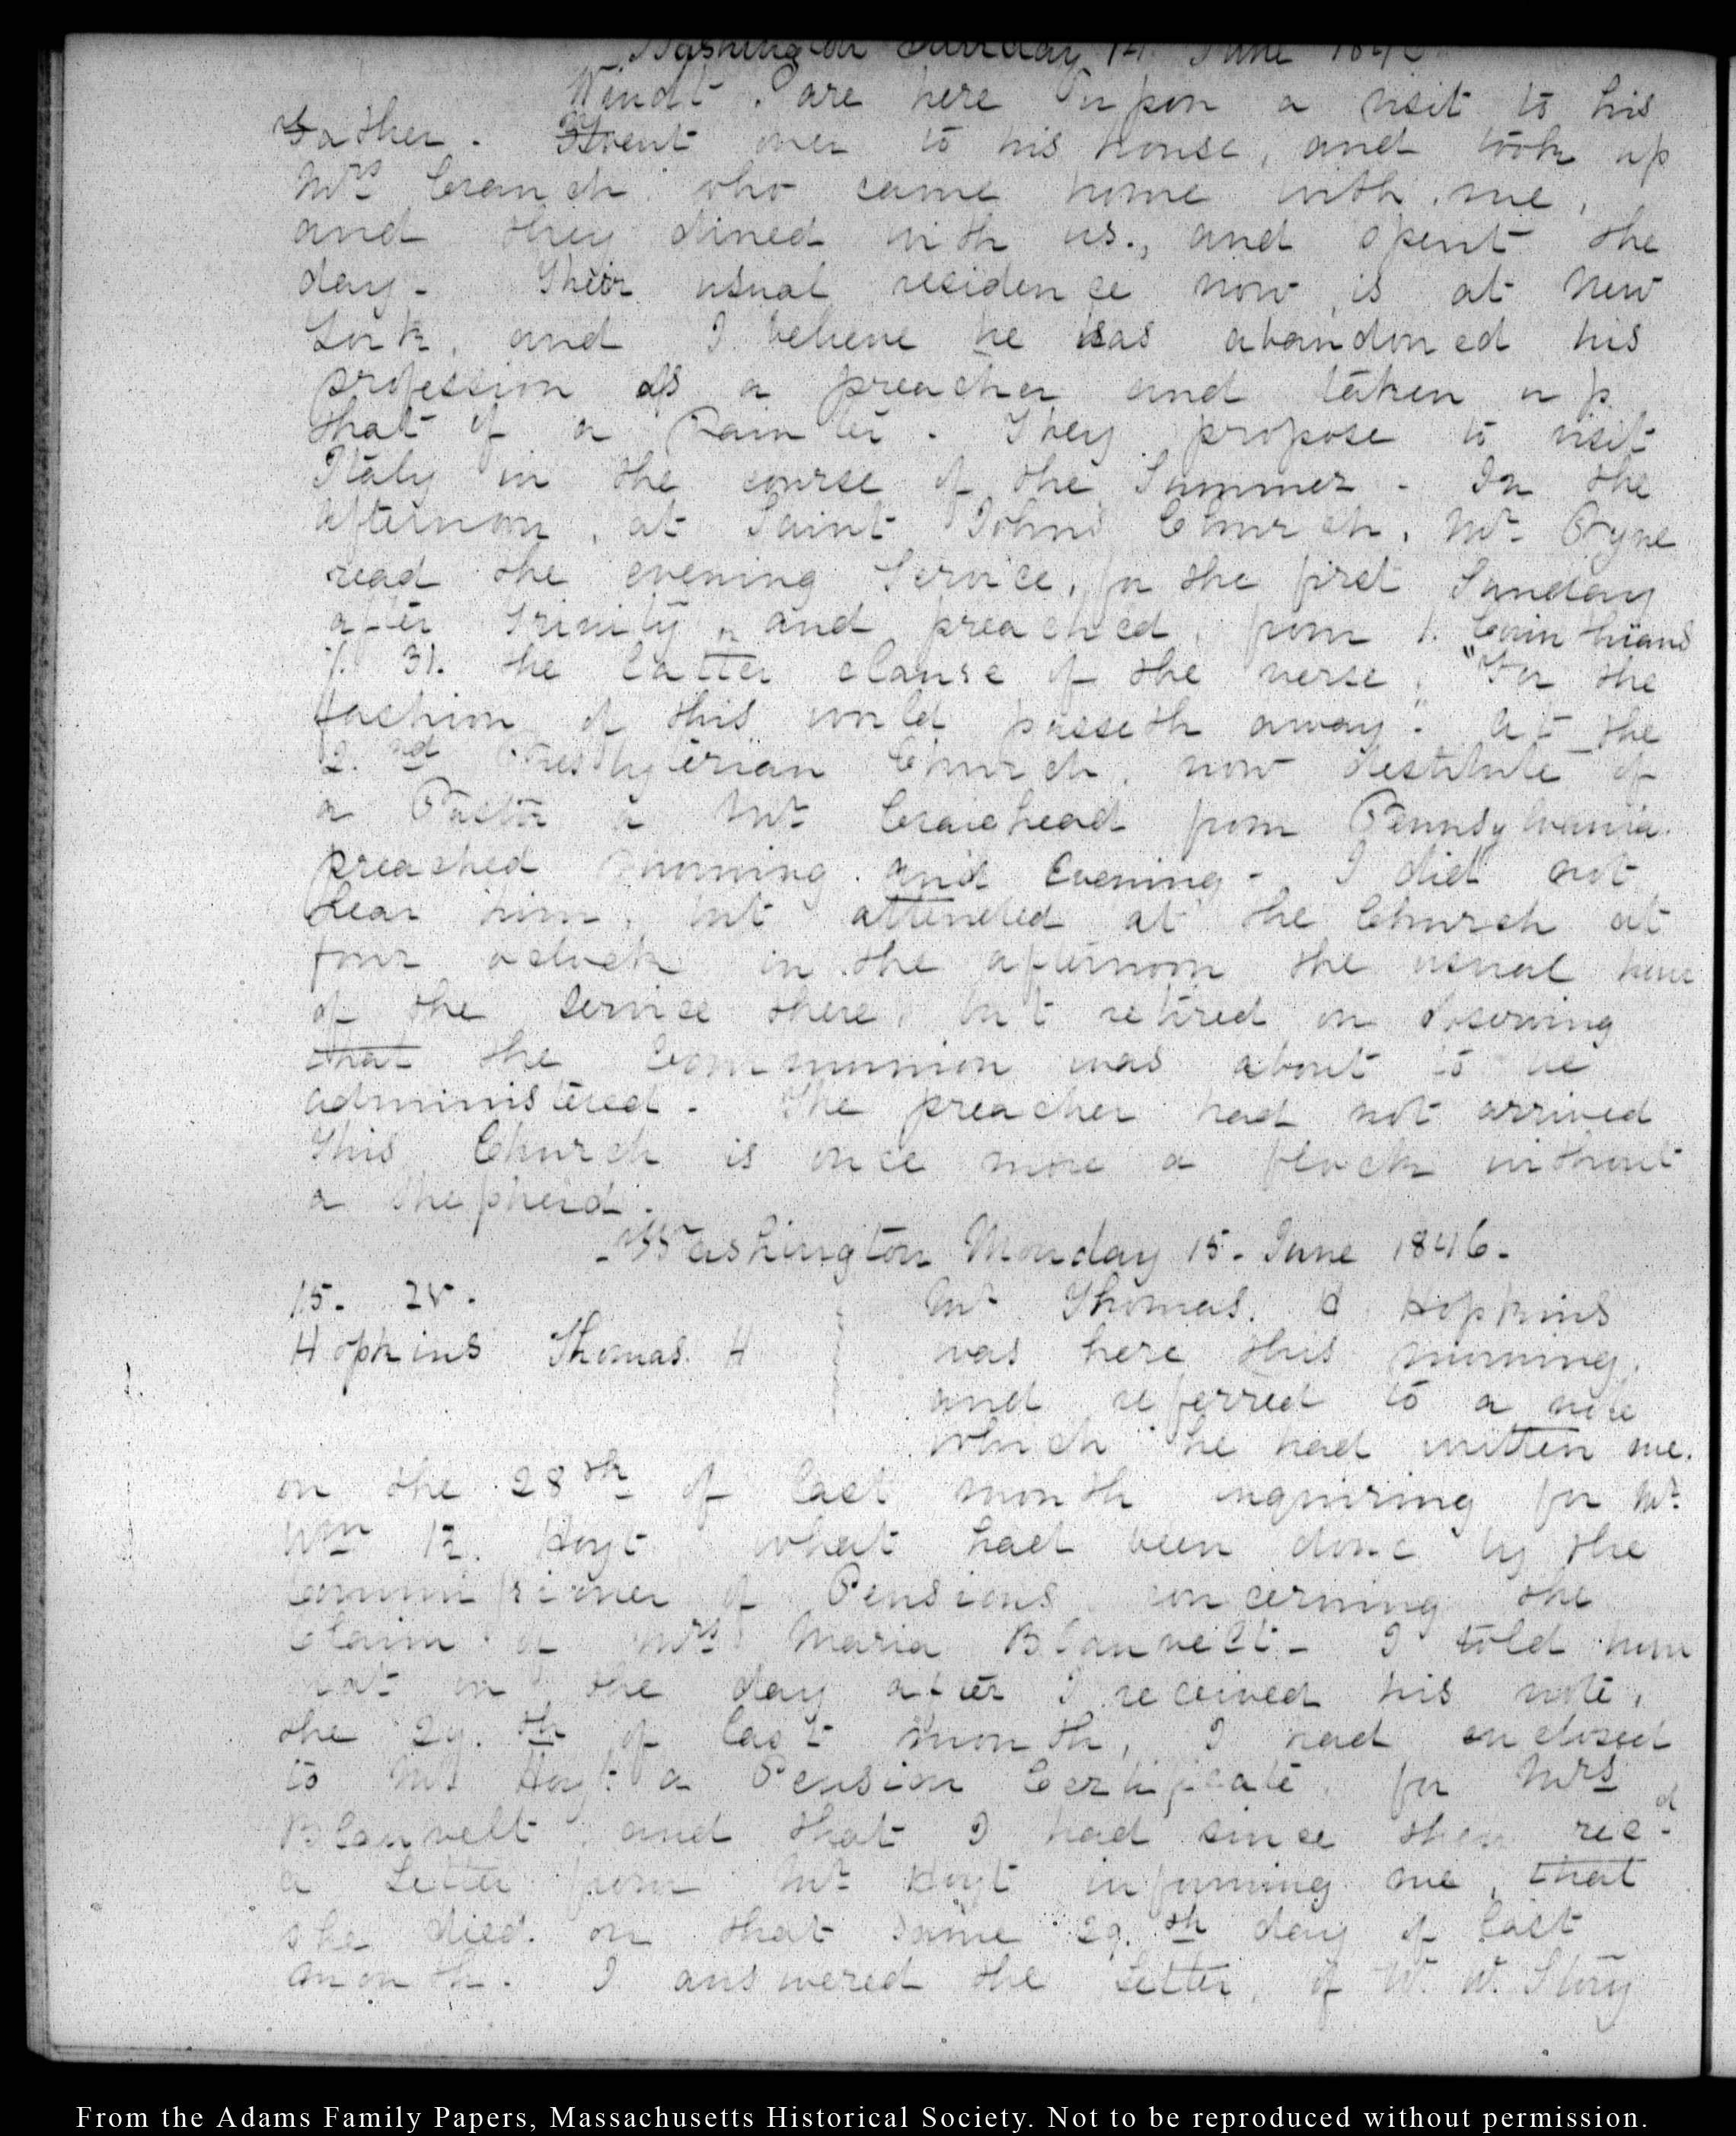 Washington Sunday 14. June 1846
Windt. are here upon a visit to his
Father. I went over to his house, and took up
Mrs Cranch who came home with me,
and they dined with us., and spent the
day. Their usual residence now is at New
York, and I believe he has abandoned his
profession as a preacher and taken up
that of a Painter. They propose to visit
Italy in the course of the Summer. In the
afternoon, at Saint Johns Church, Mr Pyne
read the evening Service, for the first Sunday
after Trinity, and preached, from 1. Corinthians
7. 31. the latter clause of the verse, "For the
fashion of this world passeth away". At the
2.nd Presbyterian Church, now destitute of
a Pastor a Mr Craiehead from Pennsylvania.
preached morning and Evening. I did not
hear him, but attended at the Church at
four oclock in the afternoon the usual hour
of the service there, but retired on observing
that the Communion was about to be
administered. The preacher had not arrived
This Church is once more a flock without
a shepherd.
Washington Monday 15. June 1846.
15. 
Hopkins Thomas. H
Mr Thomas. Hopkins
was here this morning,
and referred to a note
which he had written me.
on the 28th of last month inquiring for Mr
Wm Hoyt what had been done by the
Commissioner of Pensions concerning the
Claim of Mrs Maria Blauvelt. I told him
that on the day after I received his note,
the 29.th of last month, I had enclosed
to Mr Hoyt a Pension Certificate, for Mrs
Blauvelt, and that I had since then recd
a Letter from Mr Hoyt informing me, that
she died on that same 29.th day of last
month. I answered the Letter, of W. W. Story
From the Adams Family Papers, Massachusetts Historical Society. Not to be reproduced without permission.